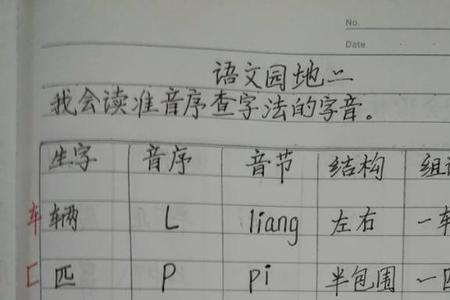 No.
Date
语文园地二
我会读准音序查字法的字音。
生字 音序 音节 结构
车 辆 L liang 左右 一车
匚 匹 P pi 半包围 一